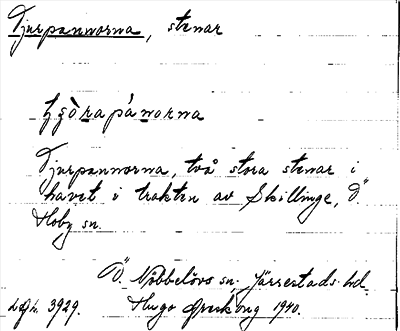 Tjurpannorna, stenar
Tjurpannorna, två stora stenar i
havet i trakten av Skillinge, Ö
Hoby sn.
Ö. Nöbbelövs sn. Järrestads hd.
3929. Hugo Areskoug 1940.